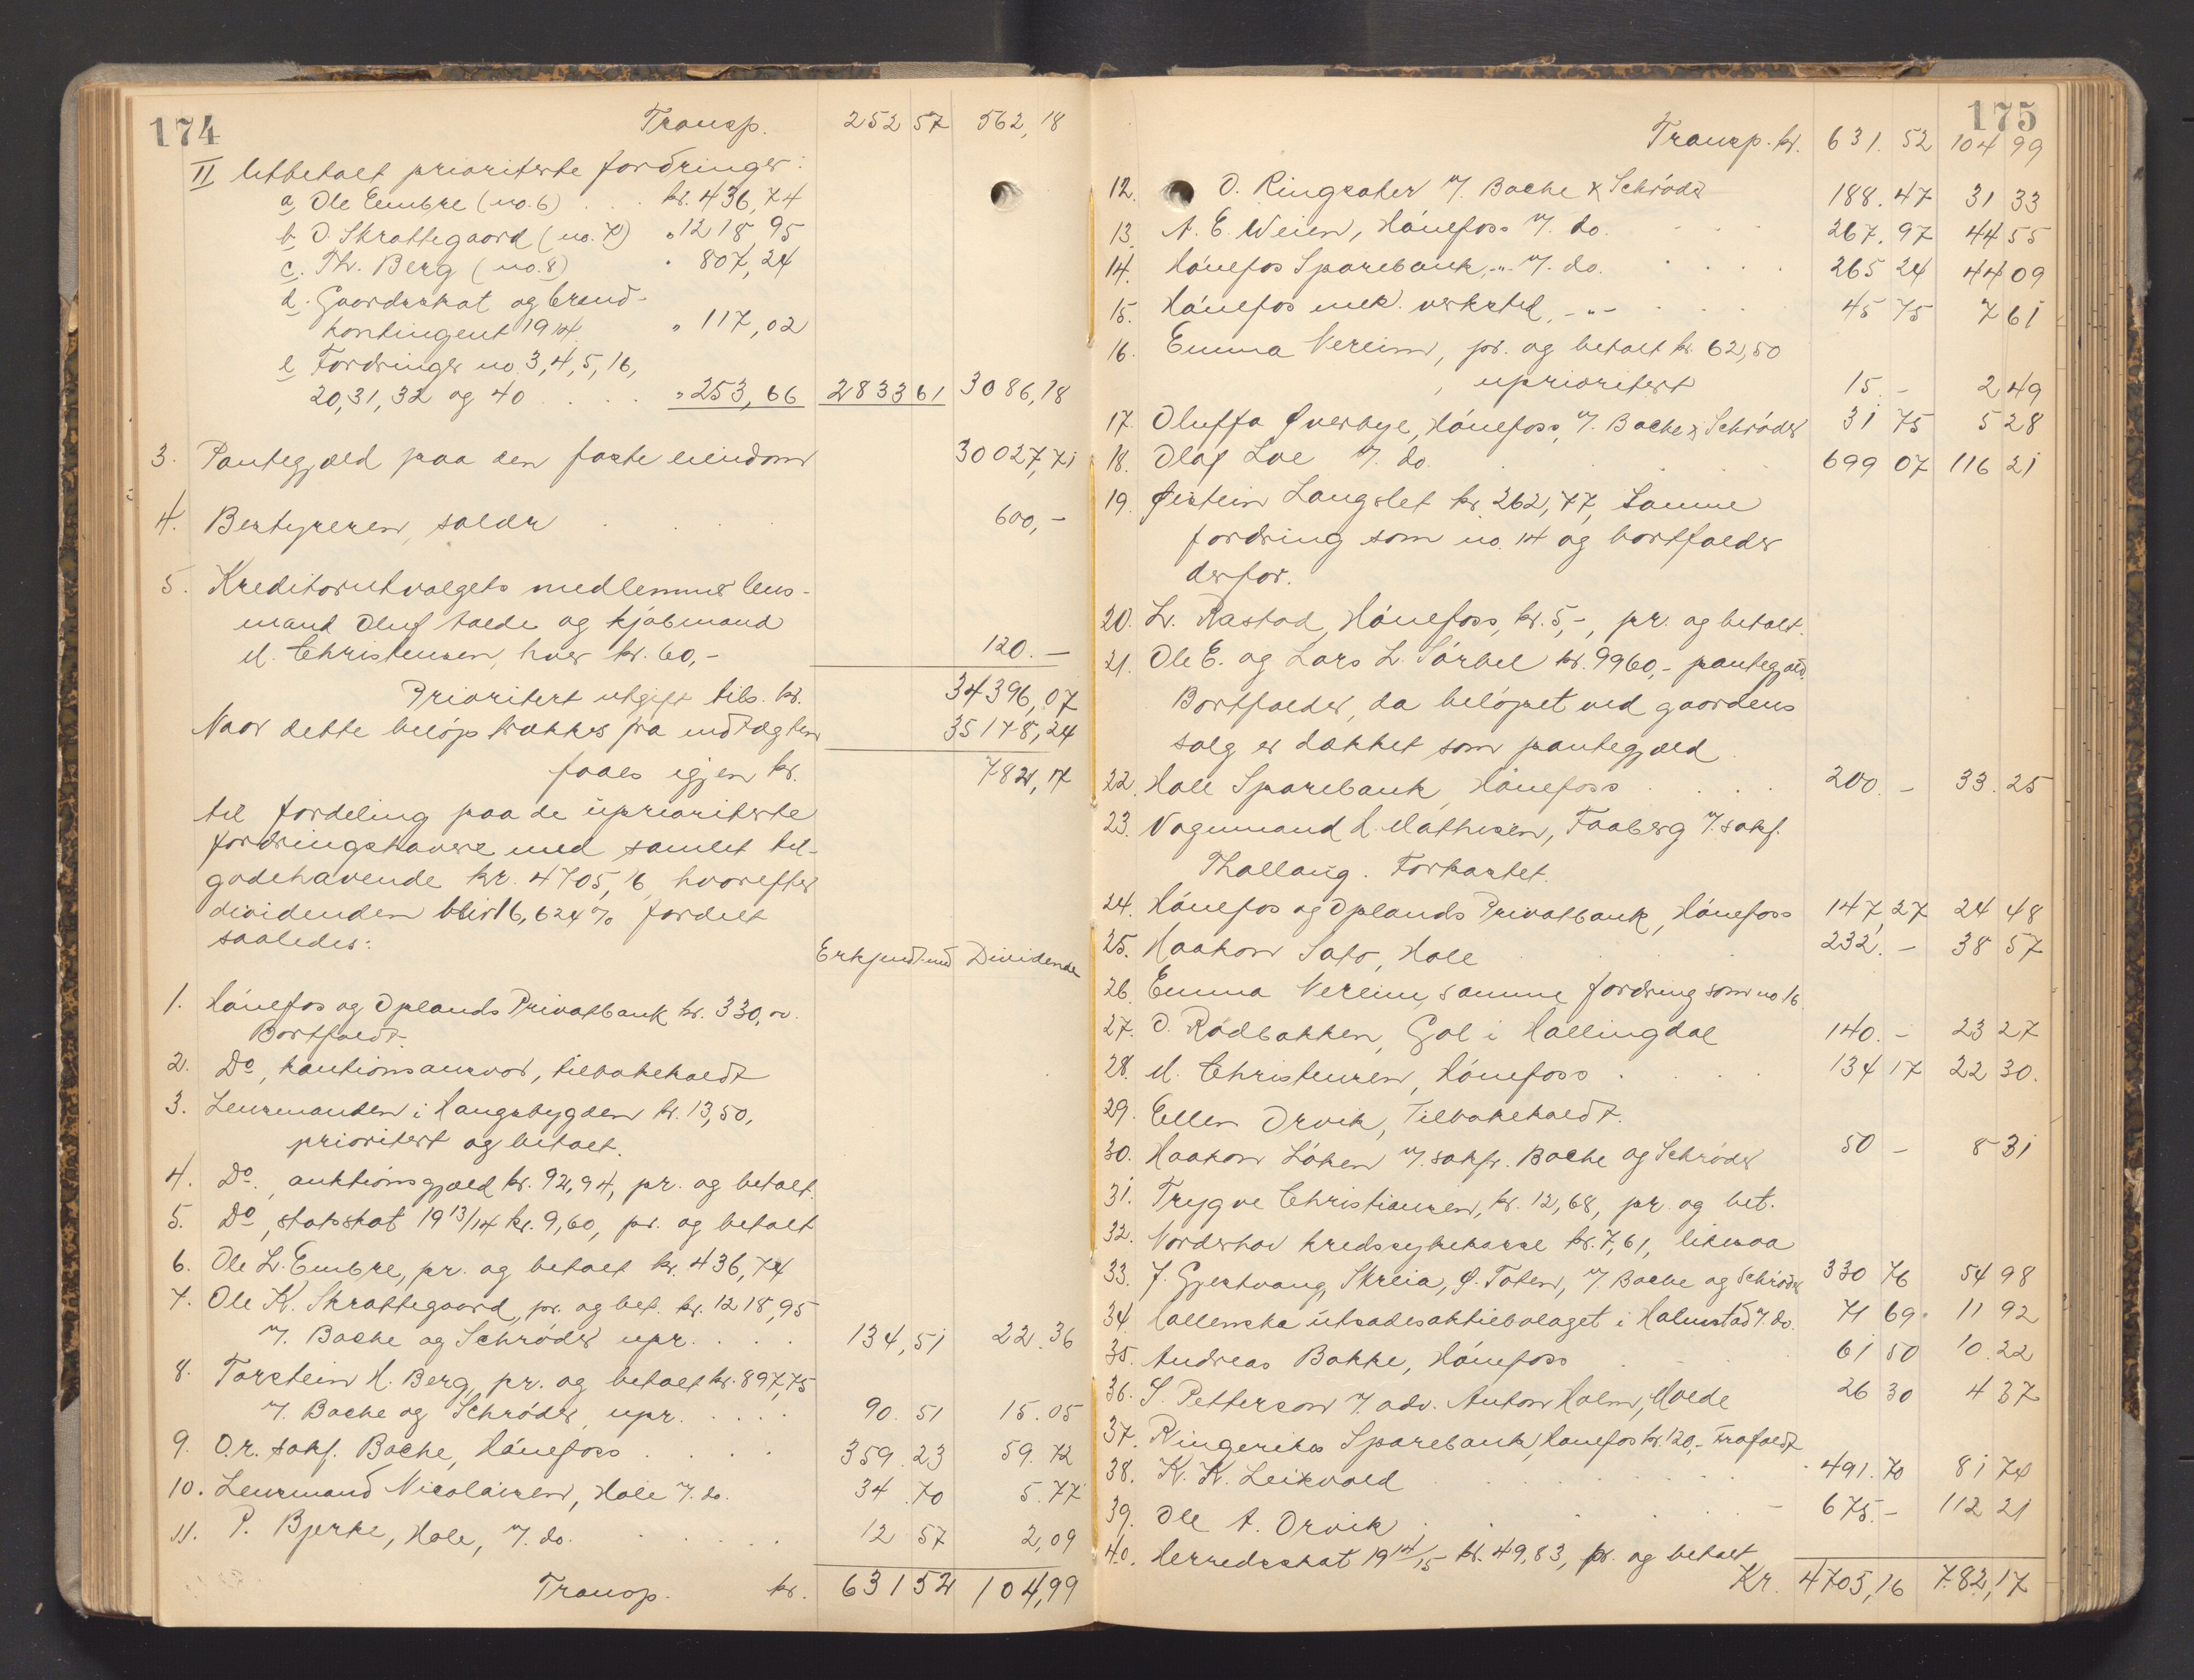 174
Transp. 252 57 562,18
II Utbetalt prioriterte fordringer:
a, Ole Embre (no. 6) . . kr. 436,74
b, O. Skrattegaard (no. 7) „ 1218 95
c. Th. Berg (no. 8) „ 807,24
d. Gaardsskat og brand-
kontingent 1914 „ 117,02
e Fordringer no. 3, 4, 5, 16,
20, 31, 32 og 40 . . . . „ 253,66 2833 61 3086,18
3. Pantegjæld paa den faste eiendom 30027,71
4. Bestyreren, salær 600,-
5. Kreditorutvalgets medlemmer lens-
mand Oluf Halde og kjøbmand
M. Christensen, hver kr. 60,- 120.-
Prioritert utgift tils. kr. 34396,07
Naar dette beløp trækkes fra indtægten 35178,24
faaes igjen kr. 782,17
til fordeling paa de uprioriterte
fordringshavere med samlet til-
godehavende kr. 4705,16 hvorefter
dividenden blir 16,624% fordelt
saaledes:
Erkjendt med Dividende
1. Hønefos og Oplands Privatbank kr. 330,00.
Bortfaldt.
2. Do, kautionsansvar, tilbakekaldt
3. Lensmanden i Haugsbygden kr. 13,50,
prioritert og betalt.
4. Do., auktionsgjæld kr. 92,94, pr. og betalt.
5. Do, statsskat 1913/14 kr. 9,60, pr. og betalt
6. Ole L. Embre, pr. og betalt kr. 436,74
7. Ole K. Skrattegaard, pr. og bet. kr. 1218,95
v/. Bache og Schrøder upr. . . . 134,51 22.36
8. Torstein H. Berg, pr. og betalt kr. 897,75
v/. Bache og Schrøder, upr. . . . . 90.51 15.05
9. O.r. sakf. Bache, Hønefoss . . . . 359.23 59.72
10. Lensmand Nicolaisen, Hole v/. do. 34.70 5.77
11. P. Bjerke, Hole, v/. do. . . . . 12 57 2,09
Transp. kr. 631 52 104,99
175
Transp. kr. 631.52 104 99
12. O. Ringsater v/. Bache & Schrøder 188.47 31 33
13. A. E. Weien, Hønefoss v/. do. . . . 267.97 44 55
14. Hønefos Sparebank, -„- v/. do. . . . 265 24 44 09
15. Hønefos mek. verksted, -„- . . . 45 75 7 61
16. Emma Vereim, pr. og betalt kr. 62,50
, uprioritert 15 - 2 49
17. Oluffa Øverbye, Hønefoss, v/. Bache & Schrøder 31 75 5 28
18. Olaf Loe v/. do. . . . . 699 07 116 21
19. Øistein Langslet kr. 262,77, Samme
fordring som no. 14 og bortfalder
derfor.
20. L. Rastad, Hønefoss, kr. 5,-, pr. og betalt.
21. Ole E. og Lars L. Sørbel kr. 9960,- pantegjæld.
Bortfalder, da beløpet ved gaardens
salg er dækket som pantegjæld.
22. Hole Sparebank, Hønefoss . . . . 200.- 33.25
23. Vognmand H. Mathisen, Faaberg v/. sakf.
Thallaug. Forkastet.
24. Hønefos og Oplands Privatbank, Hønefoss 147,27 24 48
25. Haakon Sato, Hole . . . . 232.- 38 57
26. Emma Vereim, samme fordring som no 16
27. O. Rødbakken, Gol i Hallingdal 140.- 23 27
28. M. Christensen, Hønefoss . . . . 134 17 22 30.
29. Ellen Orvik, Tilbakekaldt.
30. Haakon Løken v/. sakfr. Bache og Schrøder 50 - 8 31
31. Trygve Christiansen, kr. 12,68, pr. og bet.
32. Norderhov kredssykekasse kr. 7,61, likesaa
33. J. Gjestvang, Skreia, Ø. Toten, v/. Bache og Schrøder 330 76 54 98
34. Hallenska utsadesaktiebolaget i Halmstad v/. do. 71 69 11 92
35. Andreas Bakke, Hønefoss . . . 61 50 10.22
36. S. Petterson v/. adv. Anton Holm, Molde 26 30 4 37
37. Ringerikes Sparebank, Hønefos kr. 120,- Frafaldt
38. K. K. Leikvold . . . . 491.70 81 74
39. Ole A. Orvik . . . . 675.- 112 21
40. Herredsskat 1914/15 kr. 49,83, pr. og betalt
Kr. 4705,16 782,17